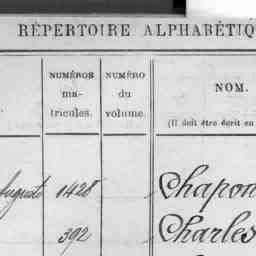 RÉPERTOIRE ALPHABÉTIQ
NUMÉROS
ma-
tricules.
NUMÉRO
du
volume.
NOM.
(Il doit être écrit en
Auguste 1428 Chapon
392 Charles